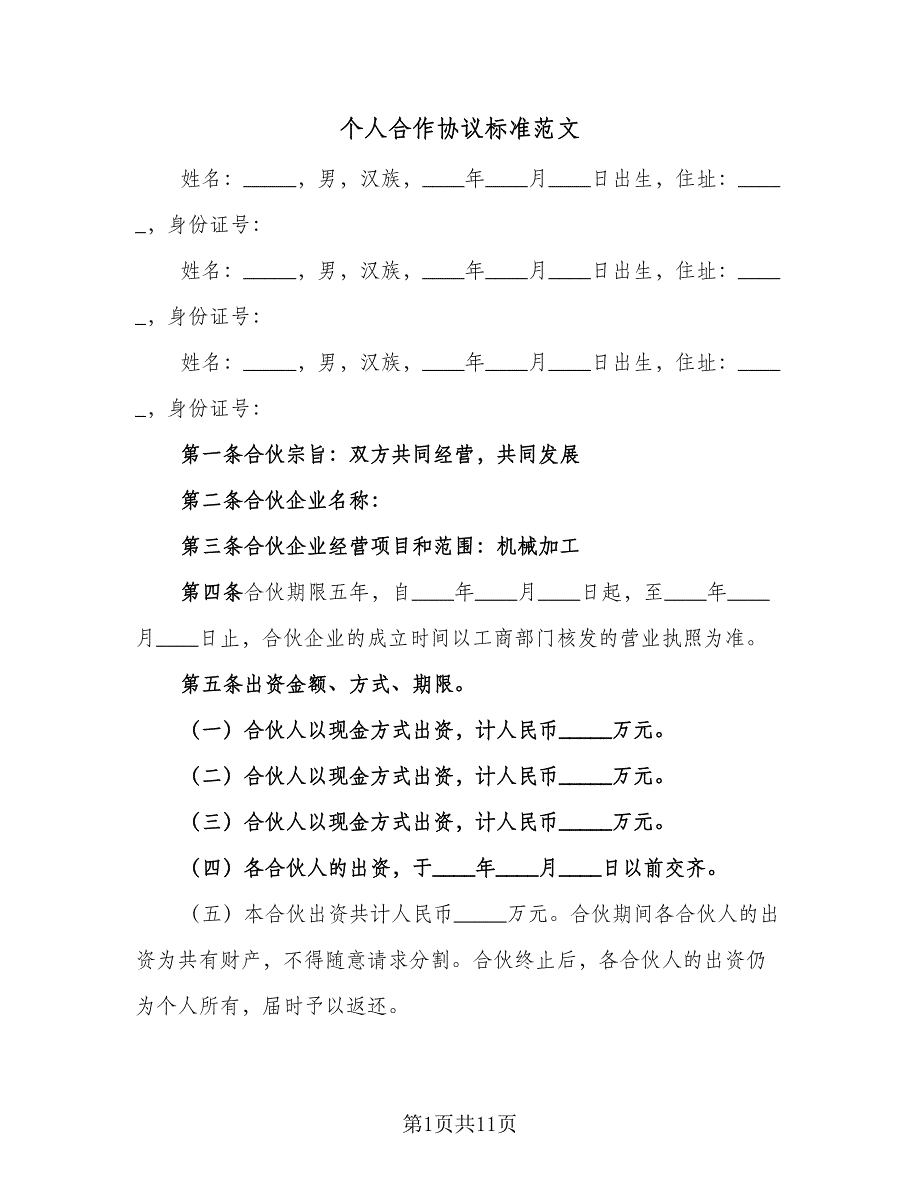 个人合作协议标准范文
姓名：_____，男，汉族，____年____月____日出生，住址：____
_，身份证号：
姓名：_____，男，汉族，____年____月____日出生，住址：____
_，身份证号：
姓名：_____，男，汉族，____年____月____日出生，住址：____
_，身份证号：
第一条合伙宗旨：双方共同经营，共同发展
第二条合伙企业名称：
第三条合伙企业经营项目和范围：机械加工
第四条合伙期限五年，自____年____月____日起，至____年____
月____日止，合伙企业的成立时间以工商部门核发的营业执照为准。
第五条出资金额、方式、期限。
（一）合伙人以现金方式出资，计人民币_____万元。
（二）合伙人以现金方式出资，计人民币_____万元。
（三）合伙人以现金方式出资，计人民币_____万元。
（四）各合伙人的出资，于____年____月____日以前交齐。
（五）本合伙出资共计人民币_____万元。合伙期间各合伙人的出
资为共有财产，不得随意请求分割。合伙终止后，各合伙人的出资仍
为个人所有，届时予以返还。
第1页共11页